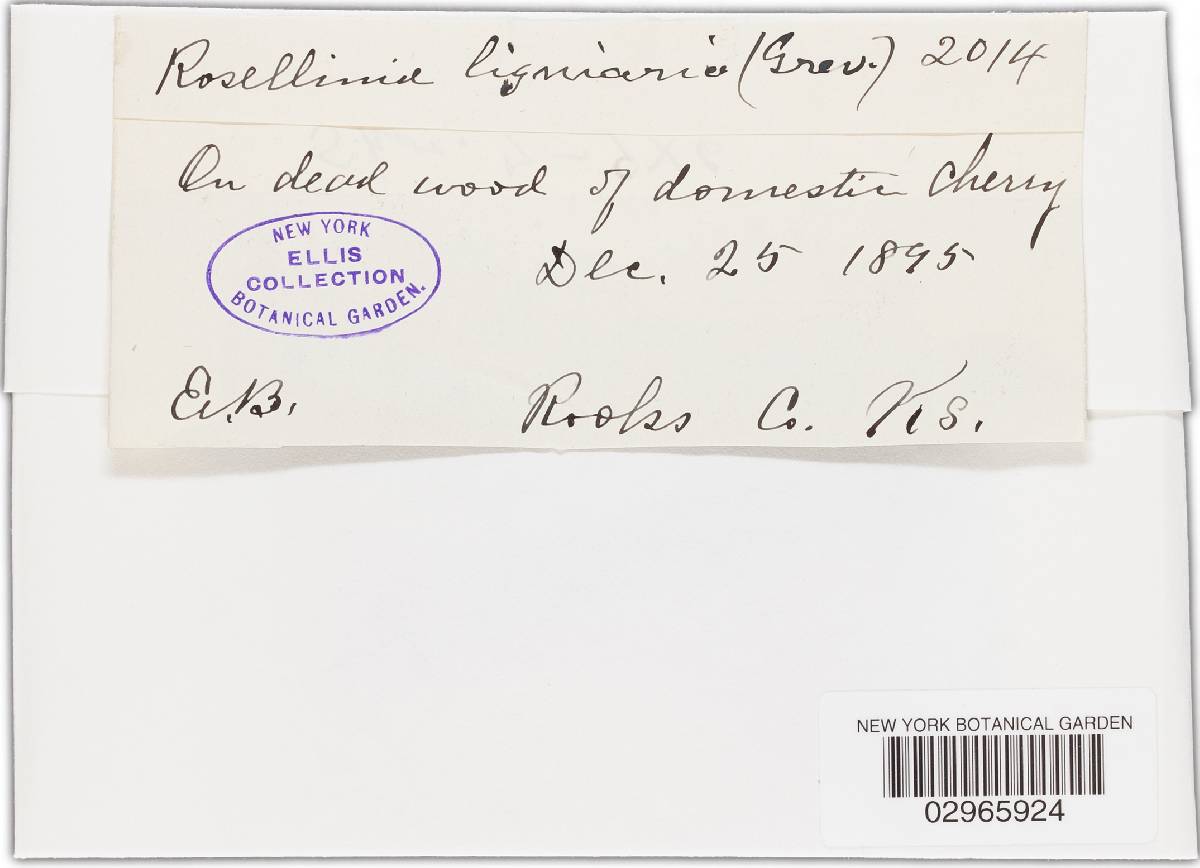 Rosellinia ligniaria (Grev.) 2014
On dead wood of domestic cherry
NEW YORK
ELLIS
COLLECTION
BOTANICAL GARDEN.
Dec. 25 1895
E.B.
Rooks Co. Ks.
NEW YORK BOTANICAL GARDEN
02965924